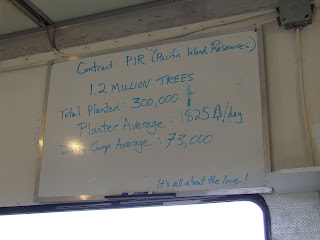 Contract: PIR (Pacific Island Resources)
1.2 MILLION TREES
Total Planted: 300,000
Planter Average: 1825 /day
Daily Camp Average: 73,000
It's all about the love!